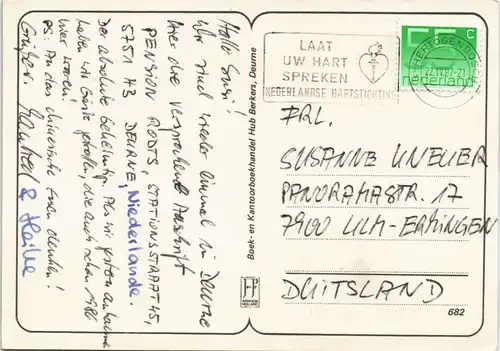 Hallo Susi!
Wir sind wieder einmal in Deurne
Hier die versprochene Anschrift
PENSION RODTS, STATIONSSTRAAT 45,
5751 HB DEURNE, Niederlande.
Der absolute Geheimtip. Als wir gestern ankamen
haben wir Gäste getroffen, die auch schon 1986
hier waren!
PS: An das chinesische Essen denken!
Grüße.
& Heike
Boek- en Kantoorboekhandel Hub Berkers, Deurne
LAAT
UW HART
SPREKEN
NEDERLANDSE HARTSTICHTING
'S-HERTOGENBOSCH
c
nederland
FRL.
SUSANNE
PANORAMASTR. 17
7900 ULM-ERMINGEN
DUITSLAND
682